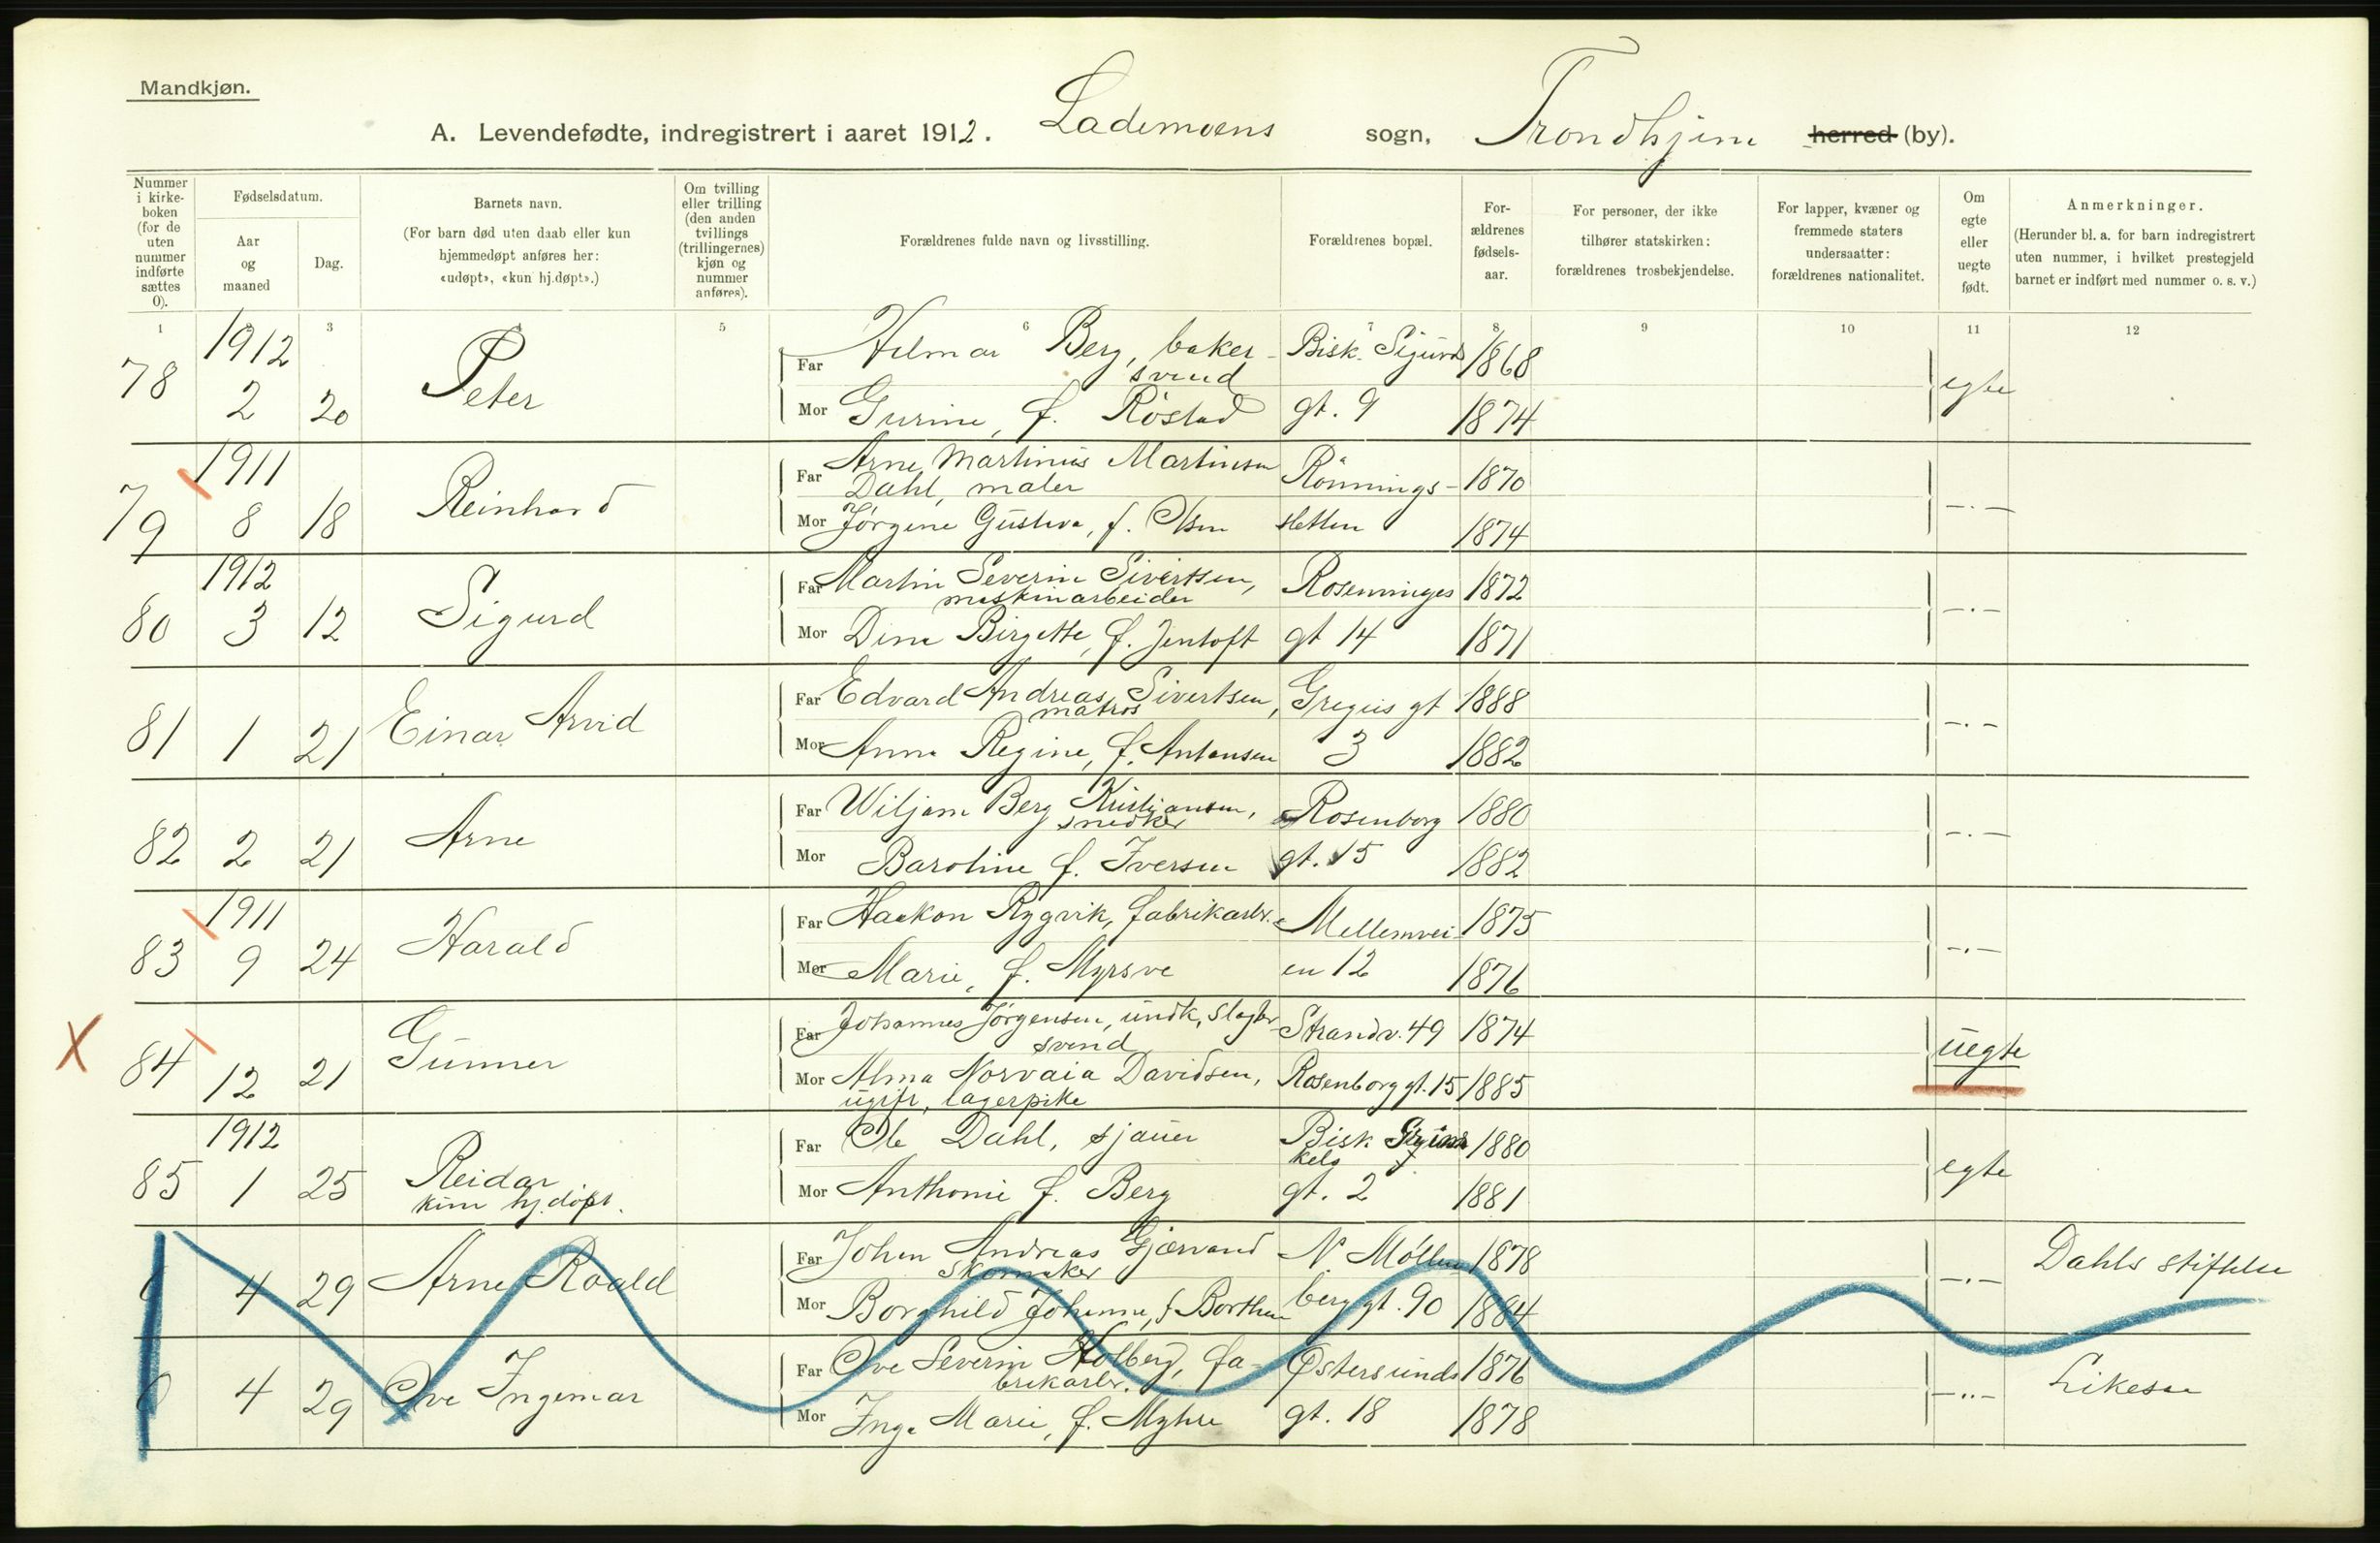 Mandkjøn.
A. Levendefødte, indregistrert i aaret 1912. Lademoens sogn, Trondhjem herred (by).
Nummer i kirke-boken (for de uten nummer indførte sættes 0).
Fødselsdatum.
Aar og maaned
Dag.
Barnets navn.
(For barn død uten daab eller kun hjemmedøpt anføres her: «udøpt», «kun hj.døpt».)
Om tvilling eller trilling (den anden tvillings (trillingernes) kjøn og nummer anføres).
Forældrenes fulde navn og livsstilling.
Forældrenes bopæl.
For-ældrenes fødsels-aar.
For personer, der ikke tilhører statskirken: forældrenes trosbekjendelse.
For lapper, kvæner og fremmede staters undersaatter: forældrenes nationalitet.
Om egte eller uegte født.
Anmerkninger.
(Herunder bl. a. for barn indregistrert uten nummer, i hvilket prestegjeld barnet er indført med nummer o. s. v.)
1 3 5 6 7 8 9 10 11 12
78 1912 2 20 Peter
Far Hilmar Berg, baker- Bisk. Sigurds 1868 egte
svend
Mor Gurine, f. Röstad gt. 9 1874
79 1911 8 18 Reinhard
Far Arne Martinus Martinsen Rönnings- 1870 -.-
Dahl, maler
Mor Jörgine Gustava, f. Olsen sletten 1874
80 1912 3 12 Sigurd
Far Martin Severin Sivertsen, Rosenninges 1872 -.-
maskinarbeider
Mor Dina Birgitte, f. Jentoft gt 14 1871
81 1 21 Einar Arvid
Far Edvard Andreas Sivertsen, Gregus gt 1888 -.-
matros
Mor Anna Regine, f. Antonsen 3 1882
82 2 21 Arne
Far Wiljam Berg Kristiansen, Rosenborg 1880 -.-
snedker
Mor Baroline f. Iversen gt. 15 1882
83 1911 9 24 Harald
Far Haakon Rygvik, fabrikarbr. Mellemvei- 1875 -.-
Mor Marie, f. Myrsve en 12 1876
X 84 12 21 Gunner
Far Johannes Jörgensen, undk, slagter Strandv. 49 1874 uegte
svend
Mor Alma Norvaia Davidsen, Rosenborg gt. 15 1885
ugift, lagerpike
85 1912 1 25 Reidar
kun hj.döpt.
Far Ole Dahl, sjauer Bisk 1880 egte
kels
Mor Anthonie f. Berg gt. 2 1881
0 4 29 Arne Roald
Far Johan Andreas Gjærvand N. Möllen 1878 -.- Dahls stiftelse
skomaker
Mor Borghild Johanne, f Borthen berg gt. 90 1884
0 4 29 Ove Ingemar
Far Ove Severin Holberg, fa- Östersunds 1876 -..- Likesaa
brikarbr.
Mor Inga Marie, f. Myhre gt. 18 1878